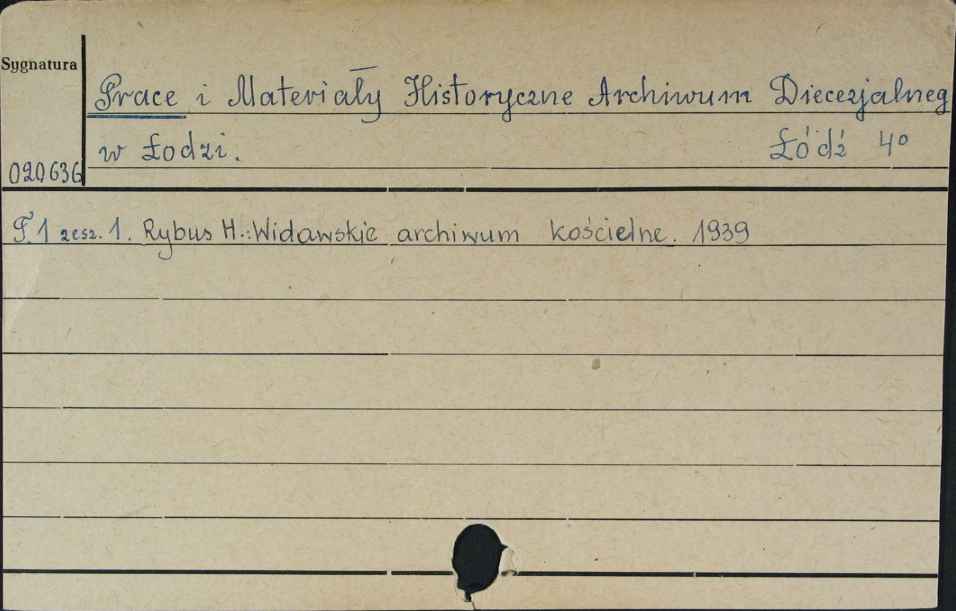 Sygnatura
Prace i Materiały Historyczne Archiwum Diecezjalneg
w Łodzi. Łódź 4°
020636
T. 1 zesz. 1. Rybus H.: Widawskie archiwum kościelne. 1939